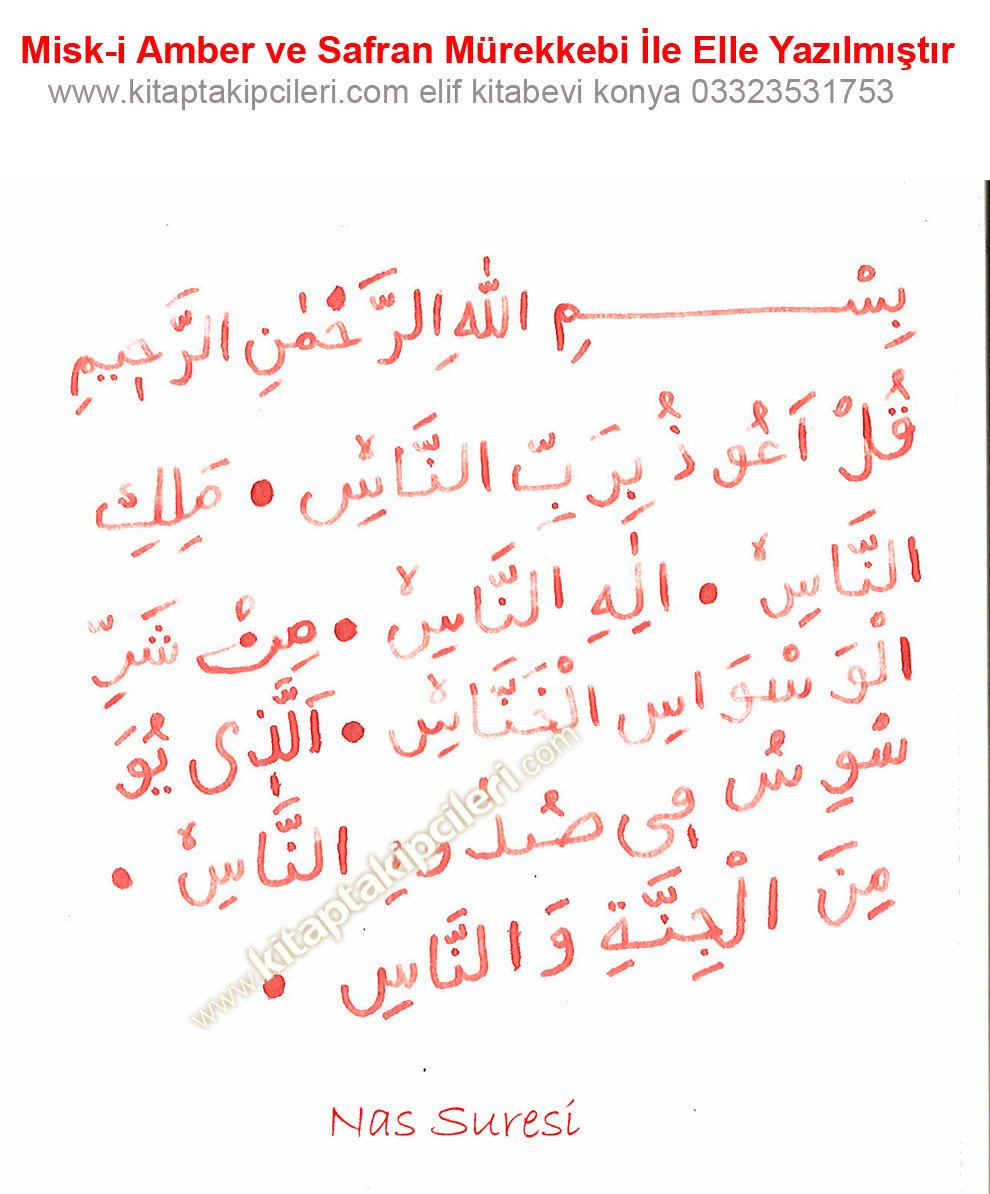 Misk-i Amber ve Safran Mürekkebi İle Elle Yazılmıştır
www.kitaptakipcileri.com elif kitabevi konya 03323531753
بِسْــــــــمِ اللّٰهِ الرَّحْمٰنِ الرَّحٖيمِ
قُلْ اَعُوذُ بِرَبِّ النَّاسِۙ • مَلِكِ
النَّاسِۙ • اِلٰهِ النَّاسِۙ • مِنْ شَرِّ
الْوَسْوَاسِ الْخَنَّاسِۙ • اَلَّذٖى يُوَ
سْوِسُ فٖى صُدُورِ النَّاسِۙ •
مِنَ الْجِنَّةِ وَالنَّاسِ •
www.kitaptakipcileri.com
Nas Suresi